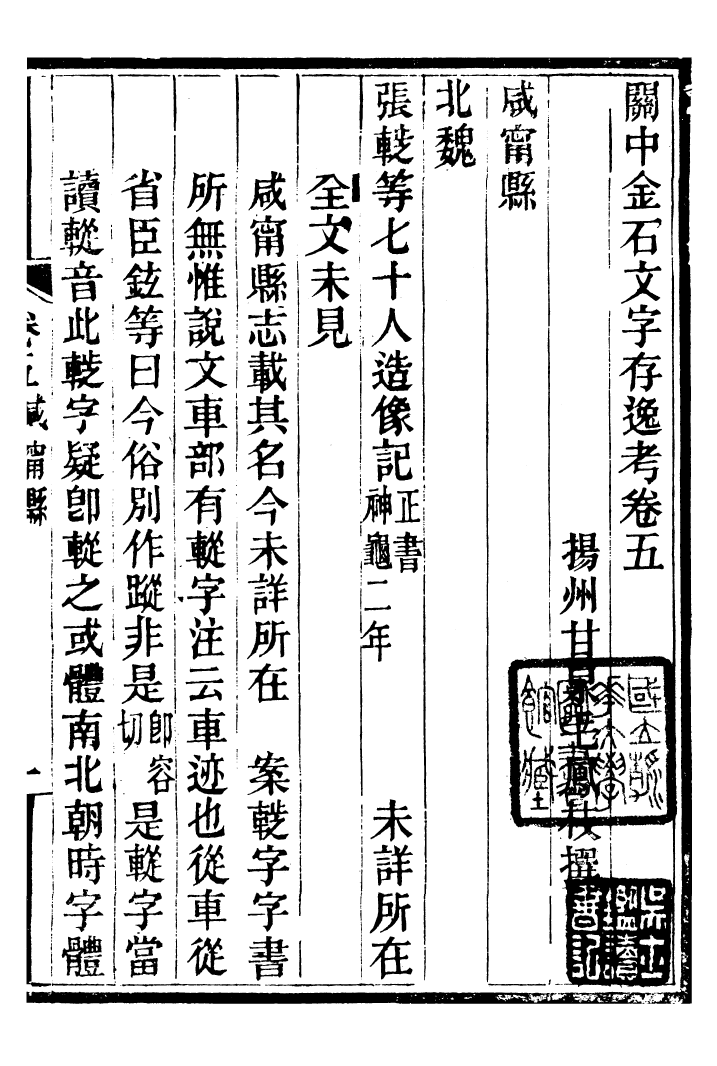 關中金石文字存逸考卷五
揚州甘泉毛鳳枝撰
咸甯縣
北魏
張䡴等七十人造像記 正書 神龜二年 未詳所在
全文未見
咸甯縣志載其名今未詳所在 案䡴字字書
所無惟說文車部有䡮字注云車迹也從車從
省臣鉉等曰今俗別作蹤非是 即容切 是䡮字當
讀䡮音此䡴字疑卽䡮之或體南北朝時字體
咸甯縣
國立 大學
館藏